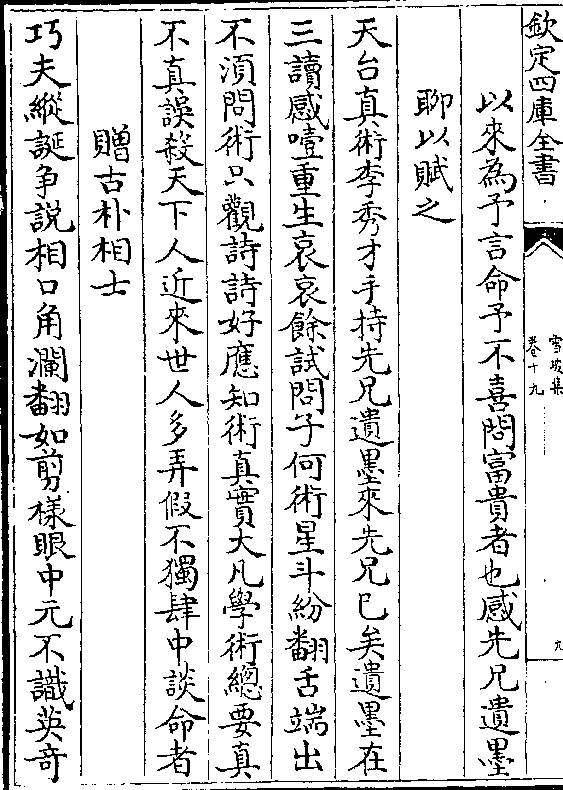 欽定四庫全書
雪坡集
卷十九
九
以來為予言命予不喜問富貴者也感先兄遺墨
聊以賦之
天台真術李秀才手持先兄遺墨來先兄已矣遺墨在
三讀感噎重生哀哀餘試問子何術星斗紛翻舌端出
不湏問術只觀詩詩好應知術真實大凡學術總要真
不真誤殺天下人近來世人多弄假不獨肆中談命者
贈古朴相士
巧夫縱誕争説相口角瀾翻如剪樣眼中元不識英竒